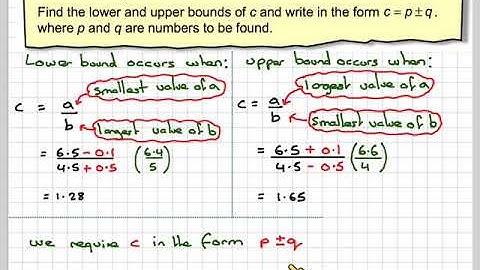 Find the lower and upper bounds of c and write in the form c = p ± q,
where p and q are numbers to be found.
Lower bound occurs when:
c = a/b
smallest value of a
largest value of b
= (6.5 - 0.1)/(4.5 + 0.5) (6.4/5)
= 1.28
upper bound occurs when:
c = a/b
largest value of a
smallest value of b
= (6.5 + 0.1)/(4.5 - 0.5) (6.6/4)
= 1.65
we require c in the form p ± q